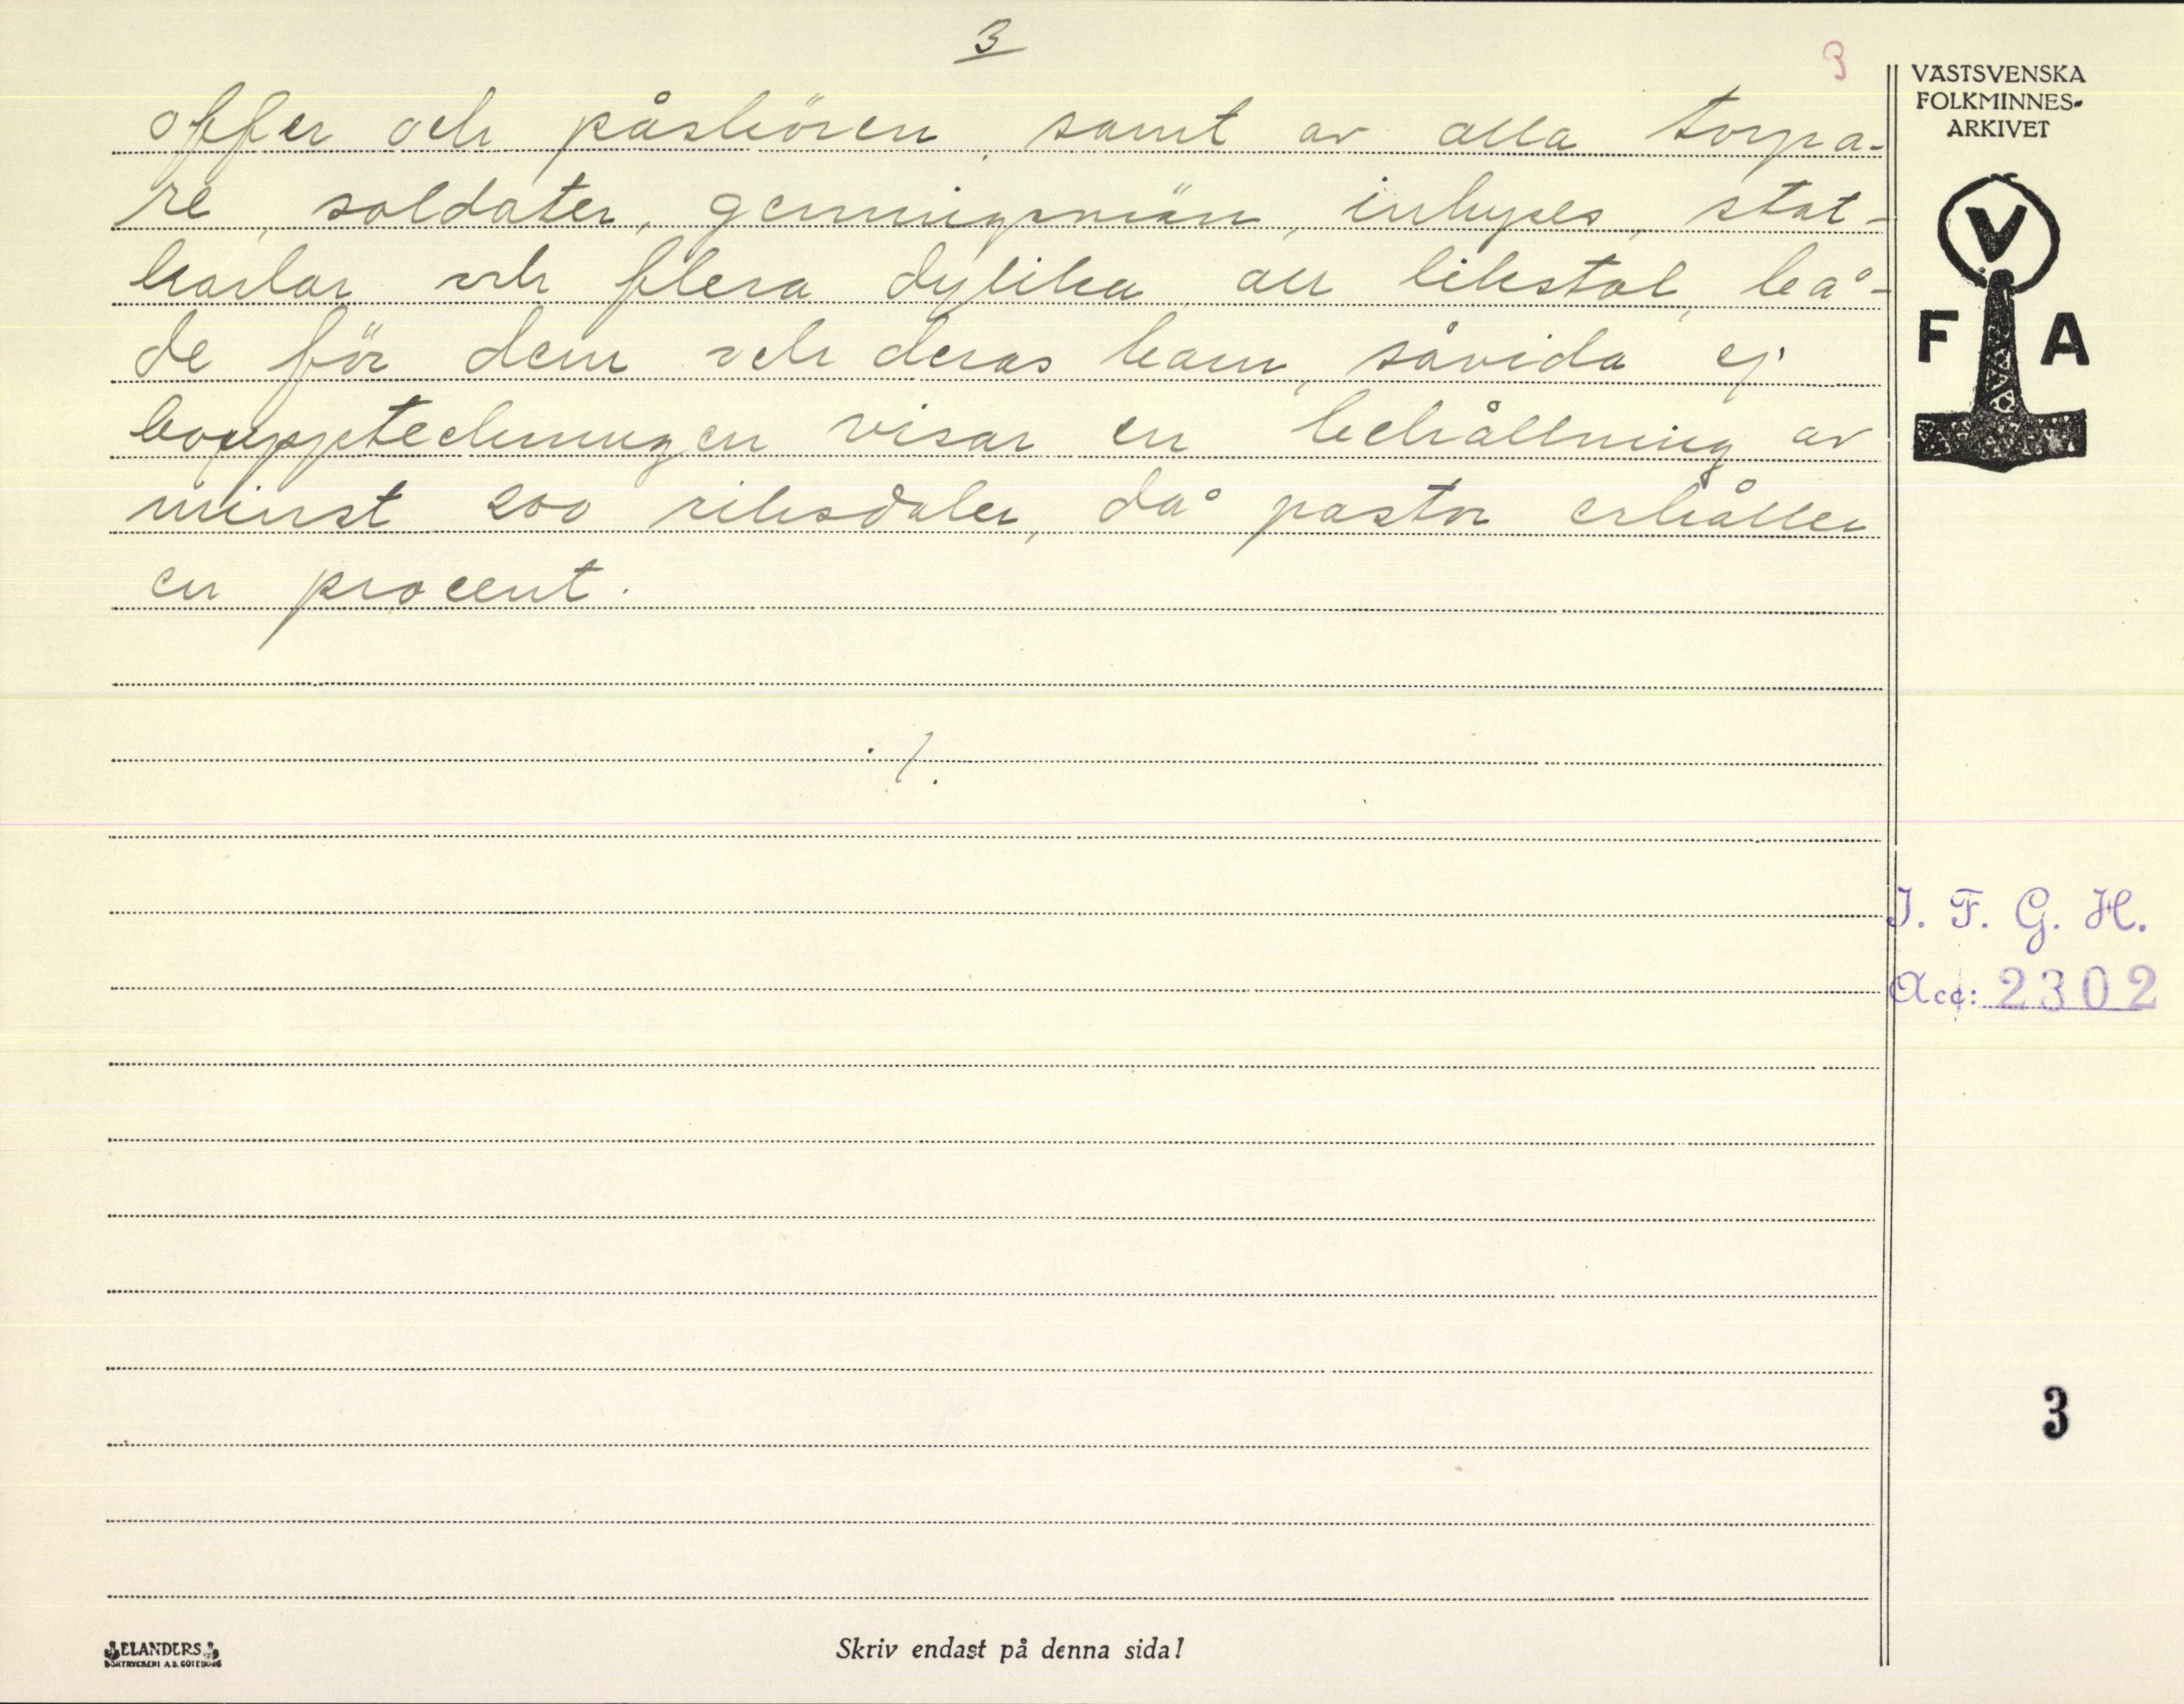 3
3
offer och påskören, samt av alla torpa-
re, soldater, gerningsmän, inhyses, stat-
karlar och flera dylika all likstol, bå-
de för dem och deras barn, såvida ej
bouppteckningen visar en behållning av
minst 200 riksdaler, då pastor erhåller
en procent.
./.
VÄSTSVENSKA
FOLKMINNES-
ARKIVET
V
F A
I. F. G. H.
Acc: 2302
3
ELANDERS
BOKTRYCKERI A.B. GÖTEBORG
Skriv endast på denna sida!